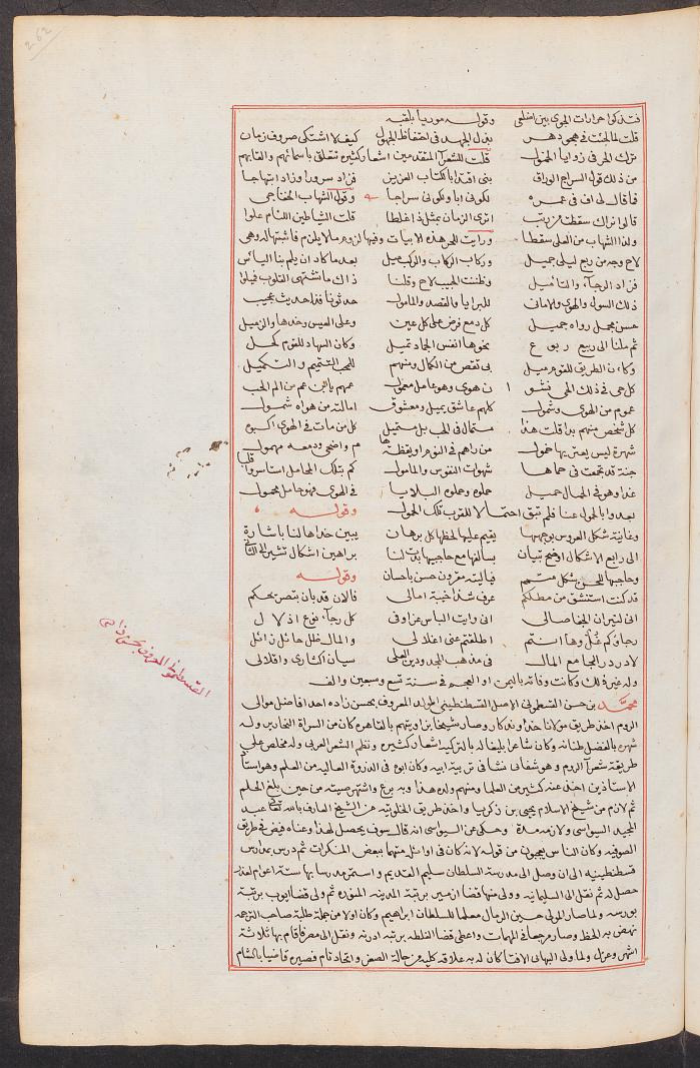 262
وقوله موريا بلقبه
قلت لما لججت في هجو دهر بذل الجهد في احتفاظ الجهول كيف لا اشتكي صروف زمان
ترك الحر في زوايا الخمول قلت للشعرا المتقدمين اشعار كثيرة تتعلق باسمائهم والقابهم
من ذلك قول السراج الوراق بني اقتدا بالكتاب العزيز فزاد سرورا وزاد ابتهاجا
فما قال لي اف في عمره لكوني ابا ولكوني سراجا وقول الشهاب الخفاجي
قالوا نراك سقطت من رتب اترى الزمان بمثل ذا غلطا قلت الشياطين اللئام علوا
ولذا الشهاب من العلى سقطا ورايت للمحبي هذه الابيات وفيها لزوم ما لا يلزم فاثبتها له وهي
لاح وجه من ربع ليلى جميل وركاب الركاب والركب ميل بعدما كاد ان يلم بنا الياس
فزاد الرجاء والتاميل وظننت الحبيب لاح وقلنا ذاك ما تشتهي القلوب فميلوا
ذلك السول والهوى والاماني للبرايا والقصد والمامول حدثونا فذا حديث عجيب
حسن مجمل رواه جميل كل دمع فرض على كل عين وعلى العيس وخدها والزميل
ثم ملنا الى ربيع ربوع نحوها انفس الجماد تميل وكان السهاد للقوم كحل
وكان الطريق للقوم ميل بي نقص من الكمال ومنهم للمحب التتميم والتكميل
كل حي في ذلك الحي نشوان هوى وهو عامل معمول عمهم باهي عم من الم الحب
عموم من الهوى وشمول كلهم عاشق يميل ومعشوق امالته من هواه شمول
كل شخص منهم بدا قلت هذا مستمال في الحب بل مستميل كل من مات في الهوى اكسبوه
شهرة ليس يعتريها خمول من راهم في النوم او يقظة هام واضحى ودمعه مهمول
جنة قد تجمعت في حماها شهوات النفوس والمامول كم بتلك المحامل استاسروا قلبا
غدا وهو في الجمال جميل حملوه وحملوه البلايا في الهوى فهو حامل محمول
بعدوا بالحمول عنا فلم تبق احتمالا للقرب تلك الحمول وقوله
وغانية شكل العروس بوجهها يقيم عليها لحظها كل برهان يبين خداها لنا باشارة
الى رابع الاشكال اوضح تبيان بسالفها مع حاجبيها بدت لنا براهين اشكال تشير الى الثاني
وحاجبها للحسن شكل متمم فياليته مقرون حسن باحسان وقوله
قد كنت استنشق من مطلكم عرف شذا خيبة امالي فالان قد بان بتصريحكم
اني لنيران الجفا صالي اني رايت الياس عزا وفي كل رجاء نوع اذلال
رجاؤكم غل وها انتم اطلقتم عني اغلالي والمال ظل حائل زائل
لا در در الجامع المال في مذهب المجد ودين العلى سيان اكثاري واقلالي
وله غير ذلك وكانت وفاته باليمن او العجم في سنة تسع وسبعين والف
محمد بن حسن القسطموني الاصل القسطنطيني المولد المعروف بحسن زاده احد افاضل موالي
الروم اخذ طريق مولانا خداوندكار وصار شيخا بزاويتهم بالقاهرة كان من السراة النحارير وله
شهرة بالفضل طنانة وكان شاعرا بليغا له بالتركية اشعار كثيرة ونظم الشعر العربي وله مخلص على
طريقة شعراء الروم وهو شفائي نشا في تربية ابيه وكان ابوه في الذروة العالية من العلم وهو استاذ
الاستاذين اخذ عنه كثير من العلما ومنهم ولده هذا وبه برع واشتهر صيته من حين بلغ الحلم
ثم لازم من شيخ الاسلام يحيى بن زكريا واخذ طريق الخلوتية عن الشيخ العارف بالله تعالى عبد
المجيد السيواسي ولازمه مدة وحكى عن السيواسي انه قال سوف يحصل لهذا وعناه فيض في طريق
الصوفية وكان الناس يعجبون من قوله لانه كان في اوائل منهمكا ببعض المنكرات ثم درس بمدارس
قسطنطينية الى ان وصل الى مدرسة السلطان سليم القديم واستمر مدرسا بها ستة اعوام لعذر
حصل له ثم نقل الى السليمانية وولي منها قضا ازمير برتبة المدينة المنورة ثم ولي قضا ايوب برتبة
بورسه ولما صار المولى حسين الرمال معلما للسلطان ابراهيم وكان اولا من جملة طلبة صاحب الترجمة
نهض به الحظ وصار مرجعا في المهمات واعطي قضا الغلطه برتبة ادرنه ونقل الى مصر فاقام بها ثلاثة
اشهر وعزل ولما ولي البهائي الافتا كان له به علاقة كلية من حالة الصغر واتحاد تام فصيره قاضيا بالشام
القسطموني المعروف بحسن زاده